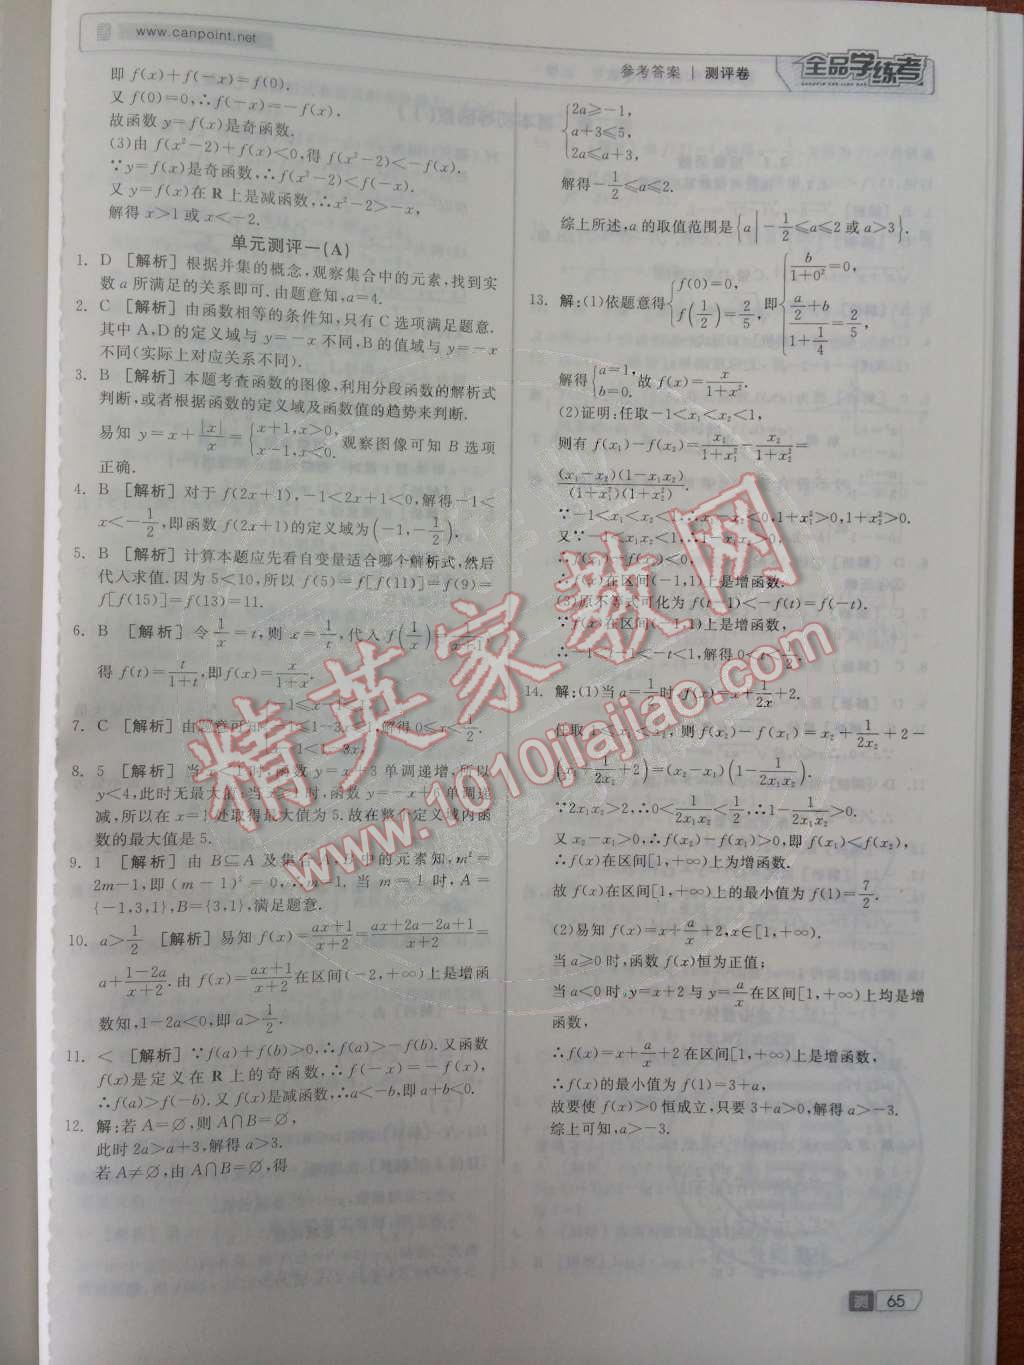 www.canpoint.net
参考答案 | 测评卷
全品学练考
即 f(x)+f(-x)=f(0).
又 f(0)=0,∴f(-x)=-f(x).
故函数 y=f(x)是奇函数.
(3)由 f(x²-2)+f(x)<0,得 f(x²-2)<-f(x).
∵y=f(x)是奇函数,∴f(x²-2)<f(-x).
又 y=f(x)在 R 上是减函数,∴x²-2>-x,
解得 x>1 或 x<-2.
单元测评一(A)
1. D [解析] 根据并集的概念,观察集合中的元素,找到实
数 a 所满足的关系即可.由题意知,a=4.
2. C [解析] 由函数相等的条件知,只有 C 选项满足题意.
其中 A,D 的定义域与 y=-x 不同,B 的值域与 y=-x
不同(实际上对应关系不同).
3. B [解析] 本题考查函数的图像,利用分段函数的解析式
判断,或者根据函数的定义域及函数值的趋势来判断.
易知 y=x+|x|/x={x+1,x>0, x-1,x<0. 观察图像可知 B 选项
正确.
4. B [解析] 对于 f(2x+1),-1<2x+1<0,解得-1<
x<-1/2,即函数 f(2x+1)的定义域为(-1,-1/2).
5. B [解析] 计算本题应先看自变量适合哪个解析式,然后
代入求值.因为 5<10,所以 f(5)=f[f(11)]=f(9)=
f[f(15)]=f(13)=11.
6. B [解析] 令1/x=t,则 x=1/t,代入 f(1/x)=
得 f(t)=t/(1+t),即f(x)=x/(1+x).
7. C [解析] 由题意可知 解得 0≤x<1/2.
8. 5 [解析] 当 x<1 时,函数 y=x+3 单调递增,所以
y<4,此时无最大值;当 x≥1 时,函数 y=-x+6 单调递
减,所以在 x=1 处取得最大值为 5.故在整个定义域内函
数的最大值是 5.
9. 1 [解析] 由 B⊆A 及集合 A,B 中的元素知,m²=
2m-1,即(m-1)²=0,∴m=1.当 m=1 时,A=
{-1,3,1},B={3,1},满足题意.
10. a>1/2 [解析] 易知 f(x)=(ax+1)/(x+2)=(ax+2a-2a+1)/(x+2)=
a+(1-2a)/(x+2).由 f(x)=(ax+1)/(x+2)在区间(-2,+∞)上是增函
数知,1-2a<0,即 a>1/2.
11. < [解析] ∵f(a)+f(b)>0,∴f(a)>-f(b).又函数
f(x)是定义在 R 上的奇函数,∴f(-x)=-f(x).
∴f(a)>f(-b).又 f(x)是减函数,∴a<-b,即 a+b<0.
12. 解:若 A=∅,则 A∩B=∅,
此时 2a>a+3,解得 a>3.
若 A≠∅,由 A∩B=∅,得
{2a≥-1,
a+3≤5,
2a≤a+3,
解得-1/2≤a≤2.
综上所述,a 的取值范围是{a|-1/2≤a≤2 或 a>3}.
13. 解:(1)依题意得{f(0)=0, f(1/2)=2/5, 即{b/(1+0²)=0, (a/2+b)/(1+1/4)=2/5,
解得{a=1, b=0. 故 f(x)=x/(1+x²).
(2)证明:任取-1<x₁<x₂<1,
则有 f(x₁)-f(x₂)=x₁/(1+x₁²)-x₂/(1+x₂²)=
(x₁-x₂)(1-x₁x₂)/((1+x₁²)(1+x₂²)).
∵-1<x₁<x₂<1,∴x₁-x₂<0,1+x₁²>0,1+x₂²>0.
又∵-1<x₁x₂<1,∴1-x₁x₂>0.
∴f(x₁)-f(x₂)<0,
∴f(x)在区间(-1,1)上是增函数.
(3)原不等式可化为 f(t-1)<-f(t)=f(-t).
∵f(x)在区间(-1,1)上是增函数,
∴-1<t-1<-t<1,解得 0<t<1/2.
14. 解:(1)当 a=1/2时,f(x)=x+1/(2x)+2.
任取 1≤x₁<x₂,则 f(x₂)-f(x₁)=x₂+1/(2x₂)+2-
(x₁+1/(2x₁)+2)=(x₂-x₁)(1-1/(2x₁x₂)).
∵2x₁x₂>2,∴0<1/(2x₁x₂)<1/2,∴1-1/(2x₁x₂)>0.
又 x₂-x₁>0,∴f(x₂)-f(x₁)>0,即 f(x₁)<f(x₂),
∴f(x)在区间[1,+∞)上为增函数.
故 f(x)在区间[1,+∞)上的最小值为 f(1)=7/2.
(2)易知 f(x)=x+a/x+2,x∈[1,+∞).
当 a≥0 时,函数 f(x)恒为正值;
当 a<0 时,y=x+2 与 y=a/x在区间[1,+∞)上均是增
函数,
∴f(x)=x+a/x+2 在区间[1,+∞)上是增函数,
∴f(x)的最小值为 f(1)=3+a,
故要使 f(x)>0 恒成立,只要 3+a>0,解得 a>-3.
综上可知,a>-3.
精英家教网
www.1010jiajiao.com
测 65